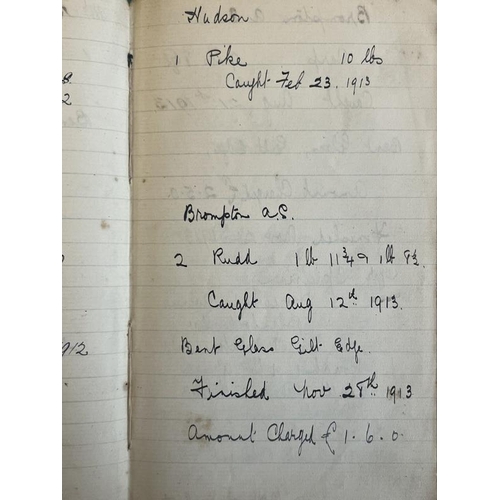 Hudson
1 Pike 10 lbs
Caught Feb 23. 1913
Brompton A.S.
2 Rudd 1 lb 11 3/4 & 1 lb 9 1/2.
Caught Aug 12th 1913.
Bent Glass Gilt Edge.
Finished Nov 28th 1913
Amount Charged £1.6.0.
8.
2
1912